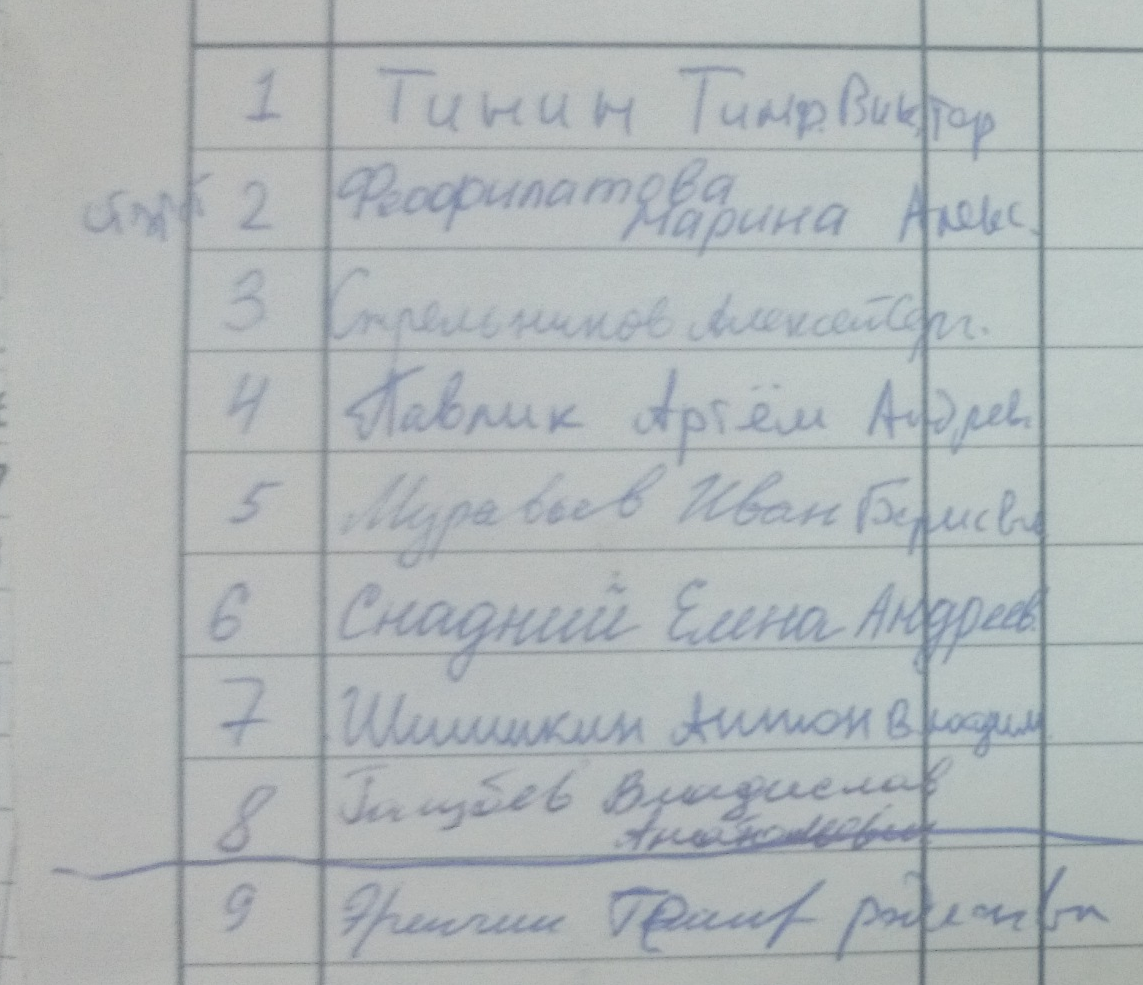 1 Тинин Тимр. Виктор
2 Феофилатова
Марина Алекс.
3 Стрельников Алексей Серг.
4 Павлик Артём Андрев.
5 Муравьев Иван Борисви
6 Снадний Елена Андреев.
7 Шишикин Антон Владим
8 Владислав
9